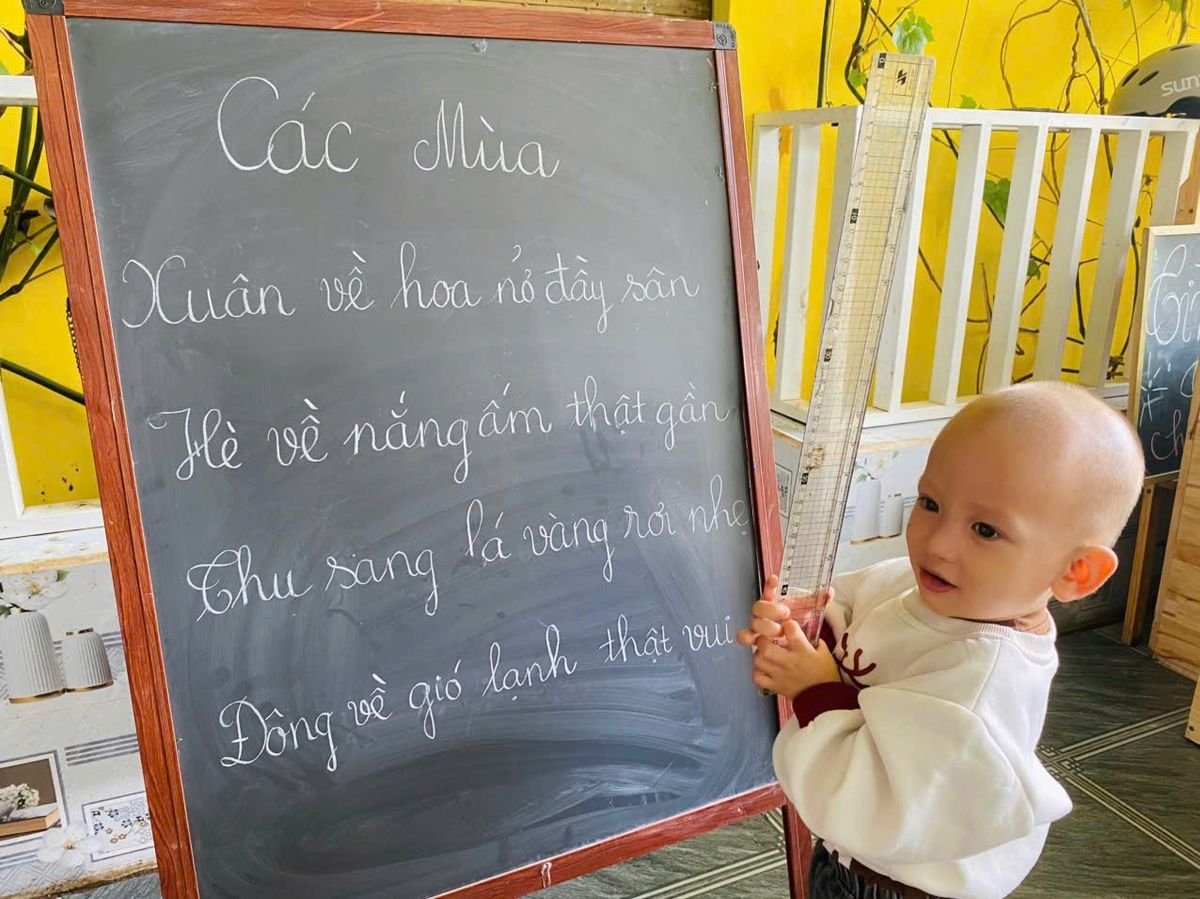 Các Mùa
Xuân về hoa nở đầy sân
Hè về nắng ấm thật gần
Thu sang lá vàng rơi nhẹ
Đông về gió lạnh thật vui
sun